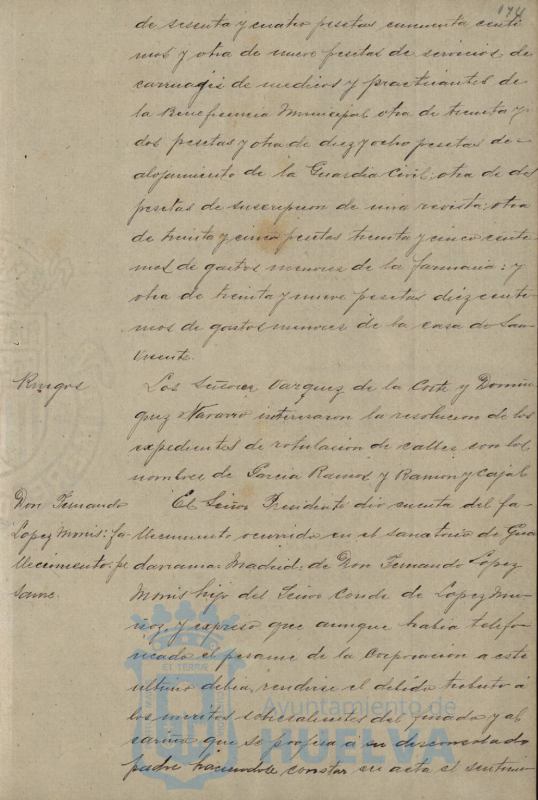 174
de sesenta y cuatro pesetas cincuenta centi
mos y otra de nueve pesetas de servicios de
carruages de medicos y practicantes de
la Beneficencia Municipal otra de treinta y
dos pesetas y otra de diez y ocho pesetas de
alojamiento de la Guardia Civil; otra de dos
pesetas de suscripcion de una revista: otra
de treinta y cinco pesetas treinta y cinco centi
mos de gastos menores de la farmacia: y
otra de treinta y nueve pesetas diez centi
mos de gastos menores de la casa de San
Vicente.
Ruegos
Los Señores Vazquez de la Corte y Domin
guez Navarro interesaron la resolucion de los
expedientes de rotulacion de calles con los
nombres de Garcia Ramos y Ramon y Cajal
Don Fernando
Lopez Monis: fa-
llecimiento: pe
same.
El Señor Presidente dio cuenta del fa-
llecimiento ocurrido en el sanatorio de Gua
darrama: Madrid: de Don Fernando Lopez
Monis hijo del Señor Conde de Lopez Mu
ñoz, y expreso que aunque habia telefo
neado el pesame de la Corporacion a este
ultimo debia, rendirse el debido tributo á
los meritos sobresalientes del finado y al
cariño que se profesa á su desconsolado
padre haciendole constar en acta el sentimi-
ET TERRÆ
Ayuntamiento de
HUELVA